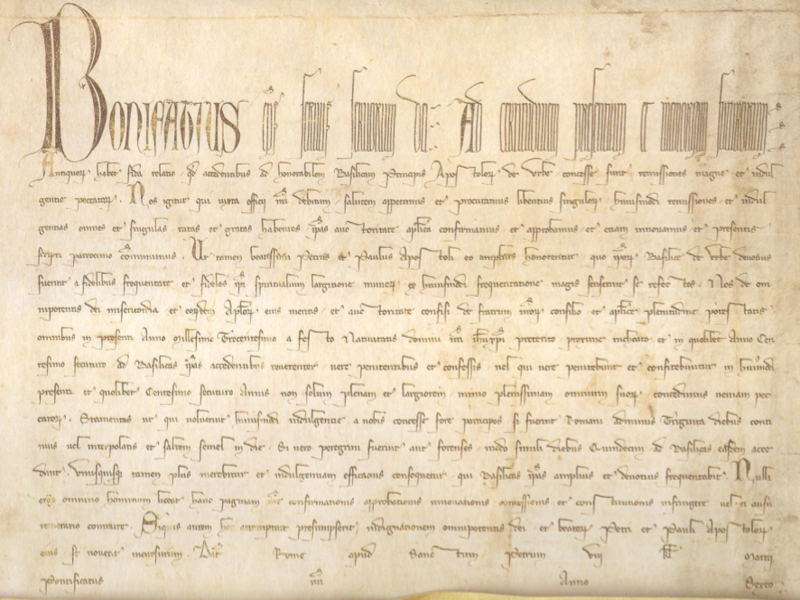 BONIFATIUS eps seruus seruorum dei. Ad certitudinem presentium et memoriam futurorum
Antiquor habet fida relatio qd accedentibus ad honorabilem Basilicam Principis Apostolor de Urbe concesse sunt remissiones magne et indul
gentie peccator. Nos igitur qui iuxta officij nri debitum salutem appetimus et procuramus libentius singulor huiusmodi remissiones et indul
gentias omnes et singulas ratas et gratas habentes ipas auctoritate aplica confirmamus et approbamus et etiam innouamus et presentis
scripti patrocinio comunimus. Ut tamen beatissimi Petrus et Paulus Apostoli eo amplius honorentur quo ipor Basilice de Urbe deuotius
fuerint a fidelibus frequentate et fideles ipi spiritualium largitione muner ex huiusmodi frequentatione magis senserint se refectos. Nos de om
nipotentis dei misericordia et eordem Aplor eius meritis et auctoritate confisi de fratrum nror consilio et aplice plenitudine potestatis
omnibus in presenti Anno millesimo Trecentesimo a festo Natiuitatis domini nri ihu xpi preterito proxime inchoato et in quolibet Anno Cen
tesimo secuturo ad Basilicas ipas accedentibus reuerenter uere penitentibus et confessis uel qui uere penitebunt et confitebuntur in huiusmodi
presenti et quolibet Centesimo secuturo Annis non solum plenam et largiorem immo plenissimam omnium suor concedimus ueniam pec
cator. Statuentes ut qui uoluerint huiusmodi indulgentie a nobis concesse fore participes si fuerint Romani adminus Triginta diebus conti
nuis uel interpolatis et saltem semel in die. Si uero peregrini fuerint aut forenses modo simili diebus Quindecim ad Basilicas easdem acce
dant. Unusquisq tamen plus merebitur et indulgentiam efficacius consequetur qui Basilicas ipas amplius et deuotius frequentabit. Nulli
ergo omnino hominum liceat hanc paginam nre confirmationis approbationis innouationis concessionis et constitutionis infringere uel ei ausu
temerario contraire. Siquis autem hoc attemptare presumpserit indignationem omnipotentis dei et beator Petri et Pauli Apostolor
eius se nouerit incursurum. Dat Rome apud Sanctum Petrum viii kl Martij
Pontificatus nri Anno Sexto